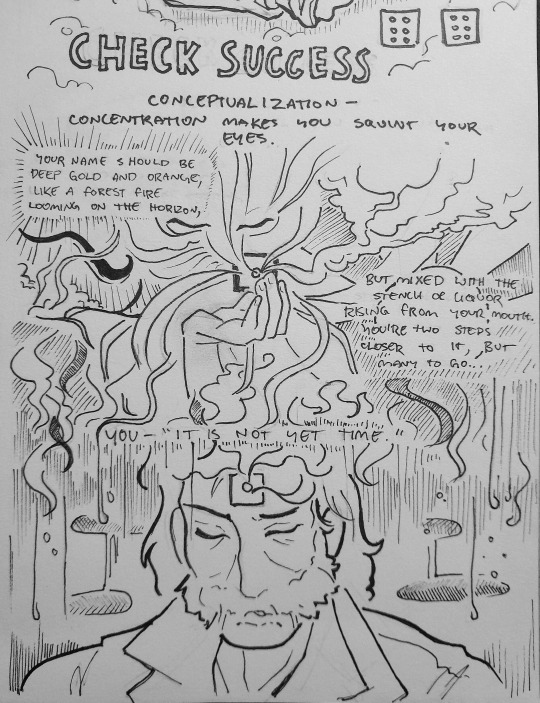 CHECK SUCCESS
CONCEPTUALIZATION -
CONCENTRATION MAKES YOU SQUINT YOUR
EYES.
YOUR NAME SHOULD BE
DEEP GOLD AND ORANGE,
LIKE A FOREST FIRE
LOOMING ON THE HORIZON,
BUT MIXED WITH THE
STENCH OF LIQUOR
RISING FROM YOUR MOUTH.
YOU'RE TWO STEPS
CLOSER TO IT, BUT
MANY TO GO...
YOU - "IT IS NOT YET TIME."